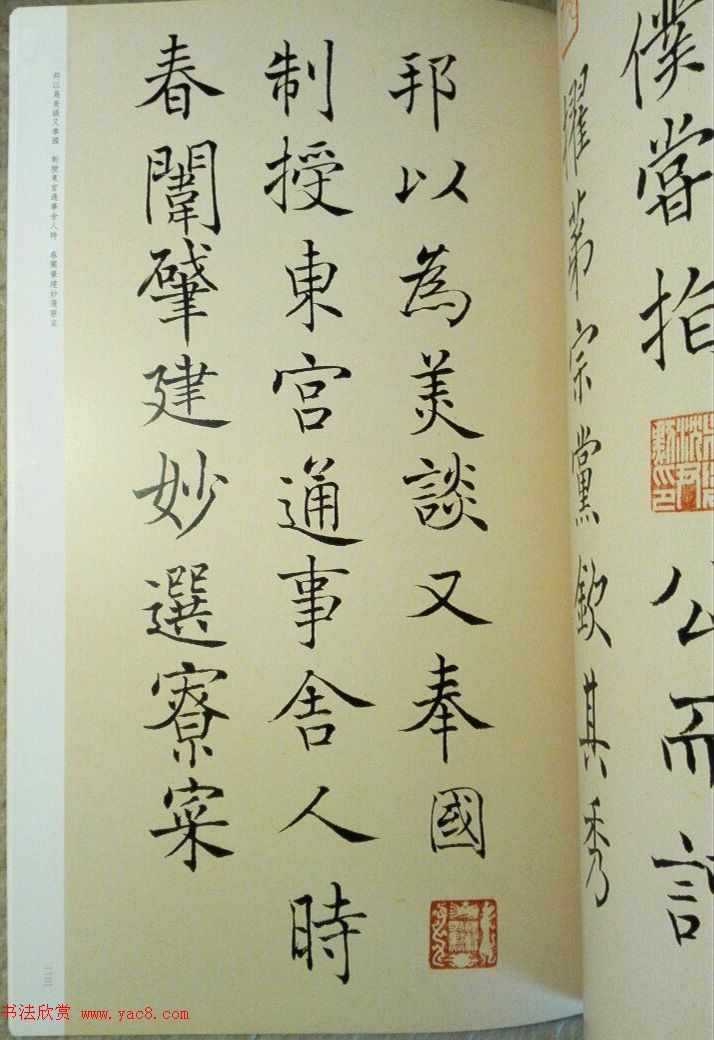 僕嘗
公而
擢第宗黨欽其秀
邦以為美談又奉國
制授東宮通事舍人時
春闈肇建妙選寮寀
邦以為美談又奉國　制授東宮通事舍人時　春闈肇建妙選寮寀
二三
书法欣赏 www.yac8.com